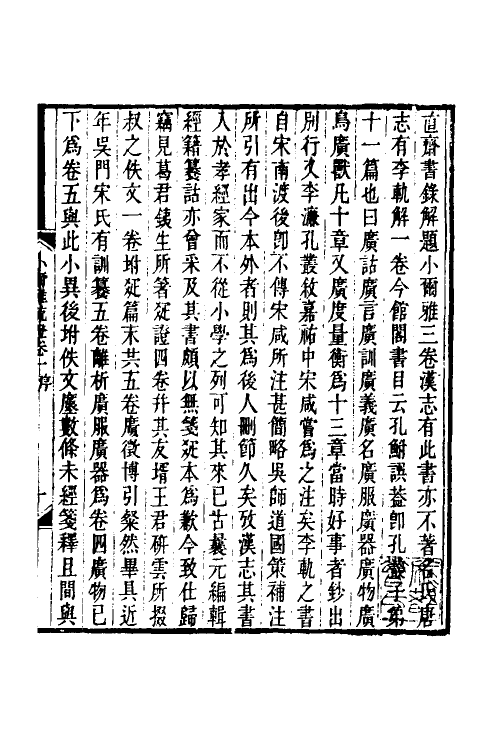 直齋書錄解題小爾雅三卷漢志有此書亦不著名氏唐
志有李軌解一卷今館閣書目云孔鮒譔葢卽孔叢子弟
十一篇也曰廣詁廣言廣訓廣義廣名廣服廣器廣物廣
鳥廣獸凡十章又廣度量衡爲十三章當時好事者鈔出
別行久李濂孔叢敘嘉祐中宋咸嘗爲之注矣李軌之書
自宋南渡後卽不傳宋咸所注甚簡略吳師道國策補注
所引有出今本外者則其爲後人刪節久矣攷漢志其書
入於孝經家而不從小學之列可知其來已古曩元編輯
經籍纂詁亦曾采及其書頗以無箋疏本爲歉今致仕歸
竊見葛君銕生所箸疏證四卷幷其友壻王君硏雲所掇
叔之佚文一卷坿疏篇末共五卷廣徵博引粲然畢具近
年吳門宋氏有訓纂五卷離析廣服廣器爲卷四廣物已
下爲卷五與此小異後坿佚文廑數條未經箋釋且間與
小爾雅疏證卷一序